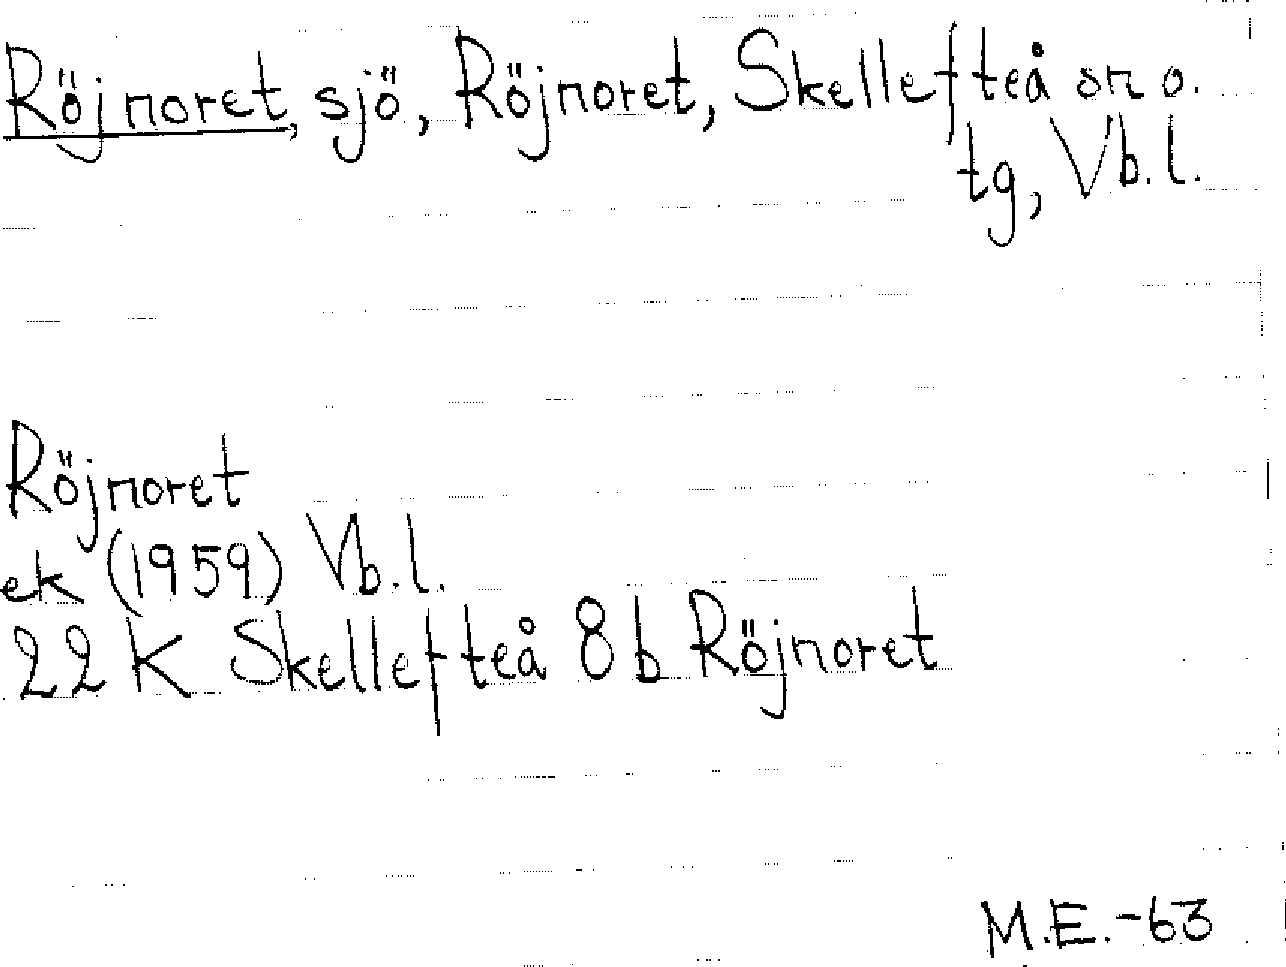 Röjnoret, sjö, Röjnoret, Skellefteå sn o.
tg, Vb.l.
Röjnoret
ek (1959) Vb.l.
22 K Skellefteå 8b Röjnoret
M.E.-63